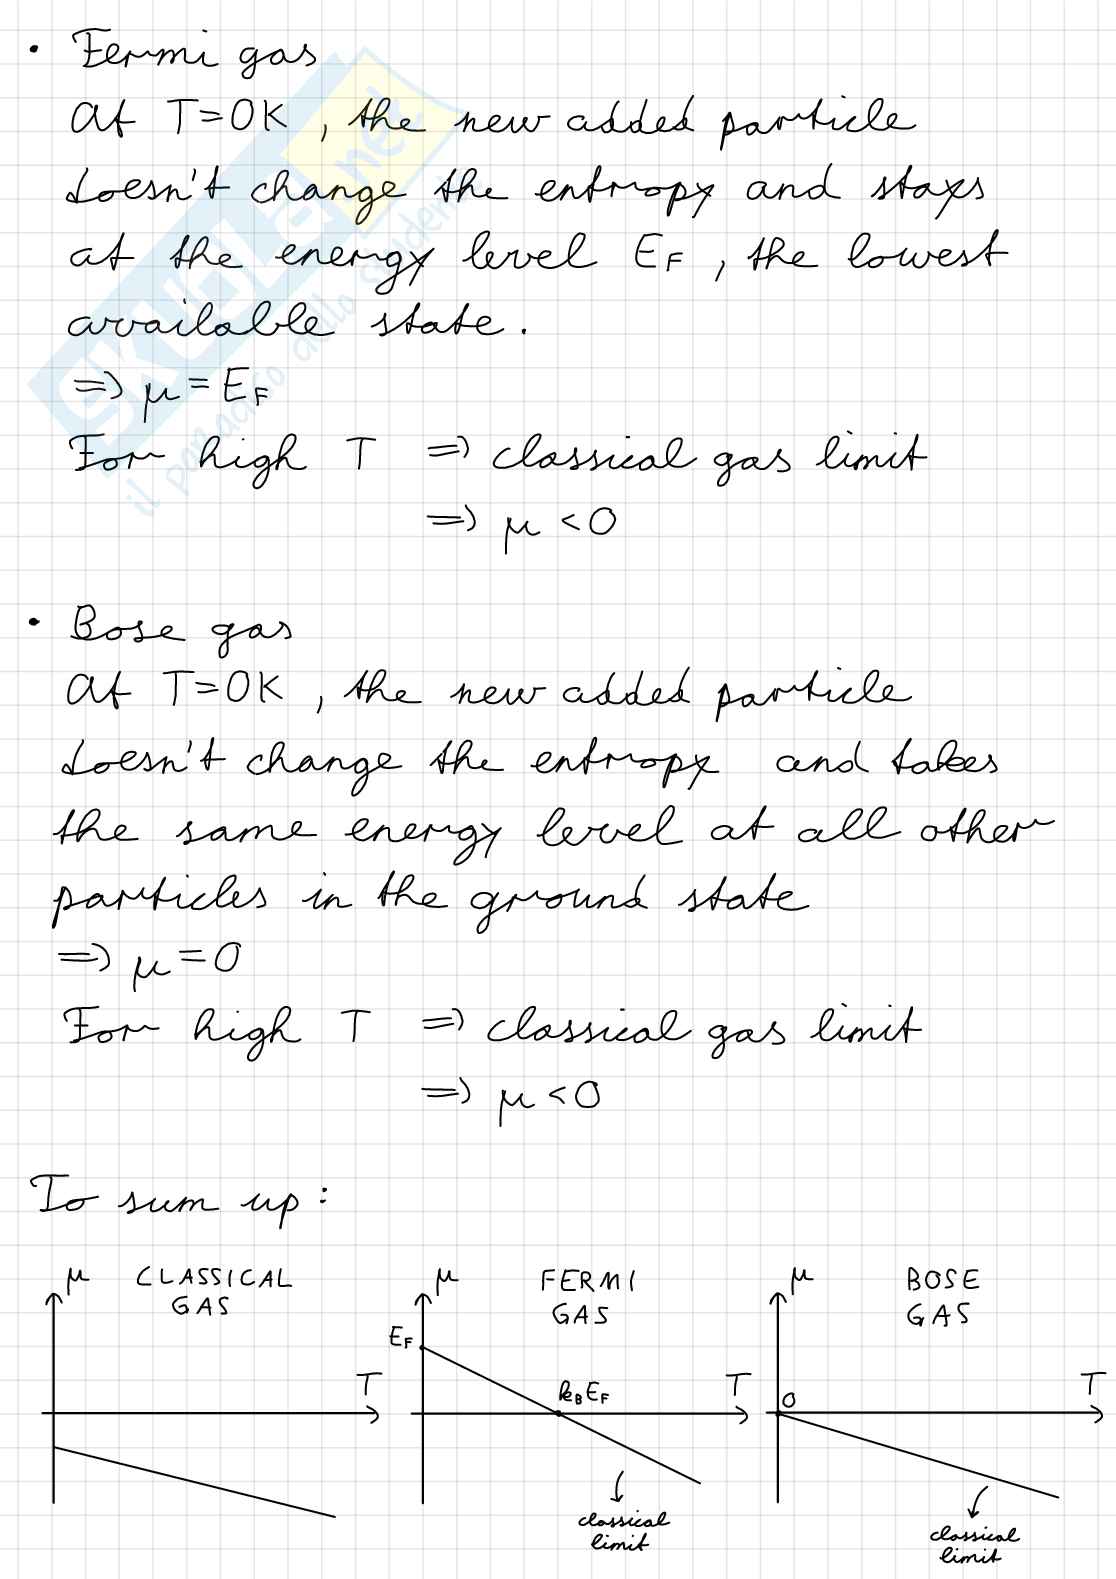 • Fermi gas
At T=0K, the new added particle
doesn't change the entropy and stays
at the energy level EF, the lowest
available state.
=> μ = EF
For high T => classical gas limit
=> μ < 0
• Bose gas
At T=0K, the new added particle
doesn't change the entropy and takes
the same energy level at all other
particles in the ground state
=> μ = 0
For high T => classical gas limit
=> μ < 0
To sum up:
μ CLASSICAL GAS
T
μ FERMI GAS
EF
kBEF
T
classical limit
μ BOSE GAS
0
T
classical limit
SKUOLA.net